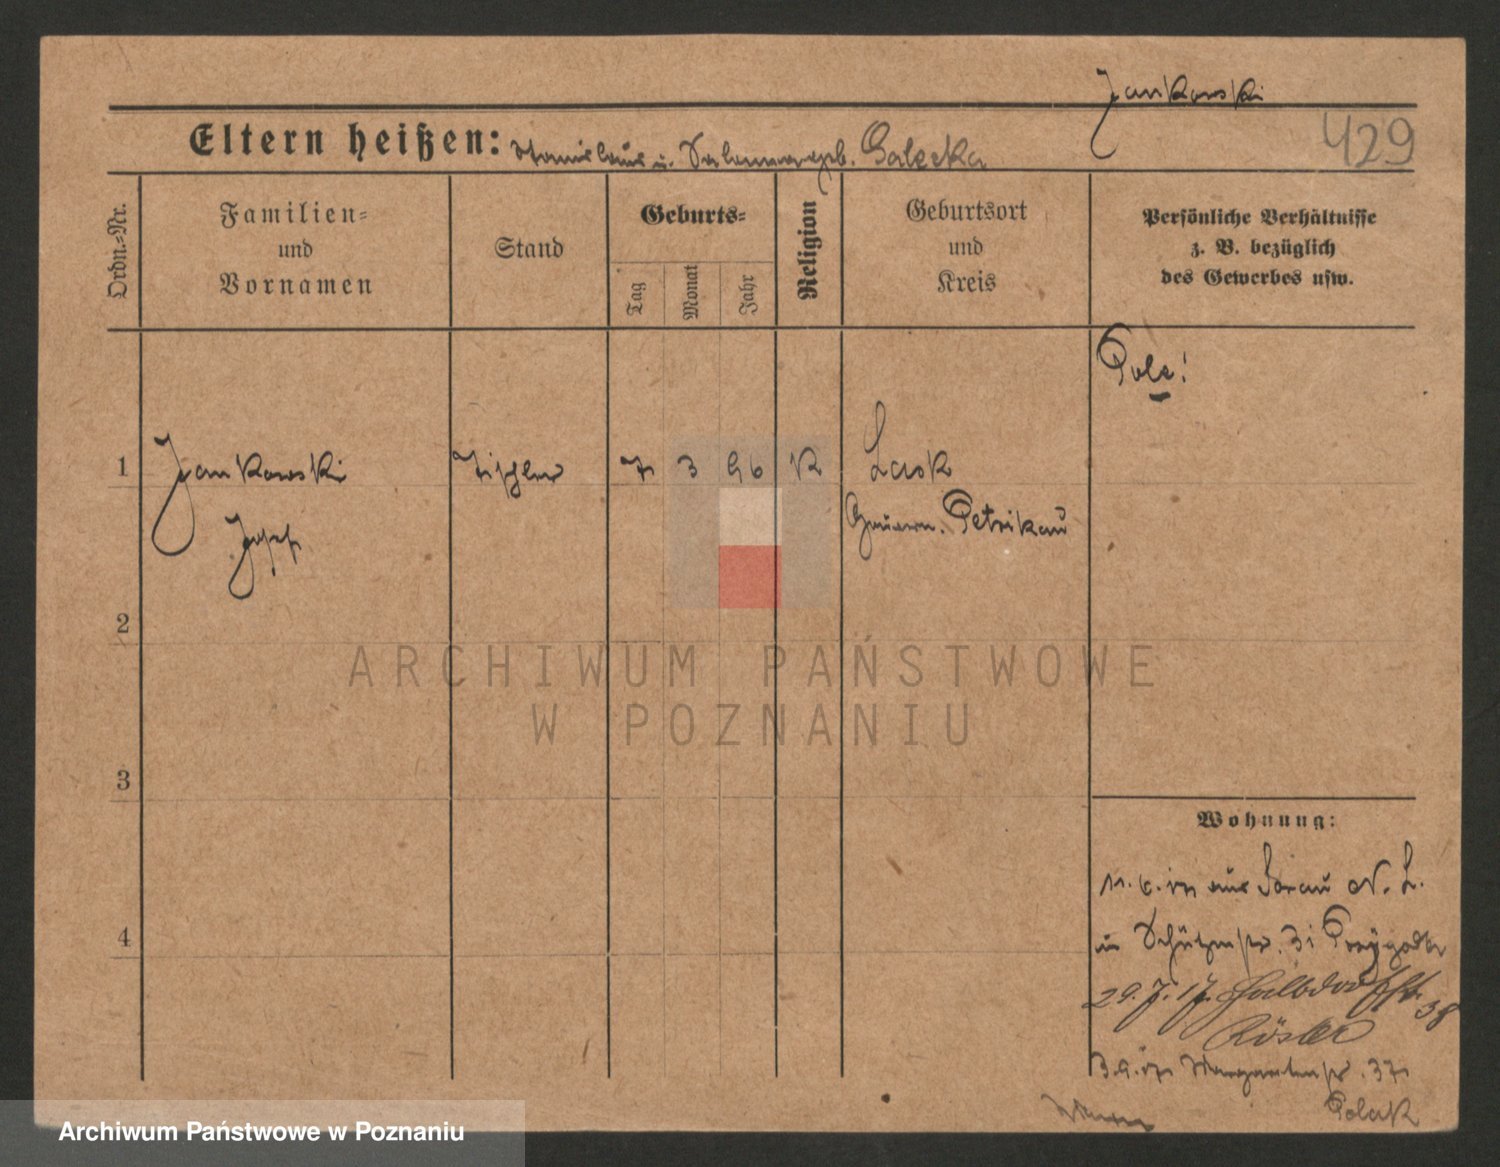 Jankowski
429
Eltern heißen: Stanislaus u. Salomea geb. Galecka
Ordn.=Nr.
Familien=
und
Vornamen
Stand
Geburts=
Tag
Monat
Jahr
Religion
Geburtsort
und
Kreis
Persönliche Verhältnisse
z. B. bezüglich
des Gewerbes usw.
Pole!
1
Jankowski
Josef
Tischler
7
3
96
K
Lask
Gouvern. Petrikau
2
3
4
Wohnung:
11. 6. 17 aus Sorau N. L.
in Schützenstr. 31 Przygoda
29. 7. 17. Halbdorfstr. 38
Rösler
3. 9. 17 Margaretenstr. 37
Polak
ARCHIWUM PAŃSTWOWE
W POZNANIU
Archiwum Państwowe w Poznaniu